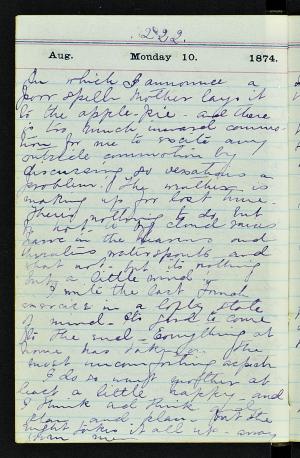 222
Aug. Monday 10. 1874.
In which I announce a
poor spell. Mother lays it
to the apple-pie - and there
is too much inward commo-
tion for me to excite any
outside commotion by
discussing so vexatious a
problem. The weather is
making up for lost time.
There's nothing to do but
hot. A cloud
in the heavens and
waterspouts and
what not, but its nothing
but a little wind.
I write the last French
exercise in a lofty state
of mind. It's good to come
to the end. Everything at
home has The
most uncomfortable
I do so want mother at
least a little happy and
I think and think
plan and plan. But the
night takes it all up away
from me.